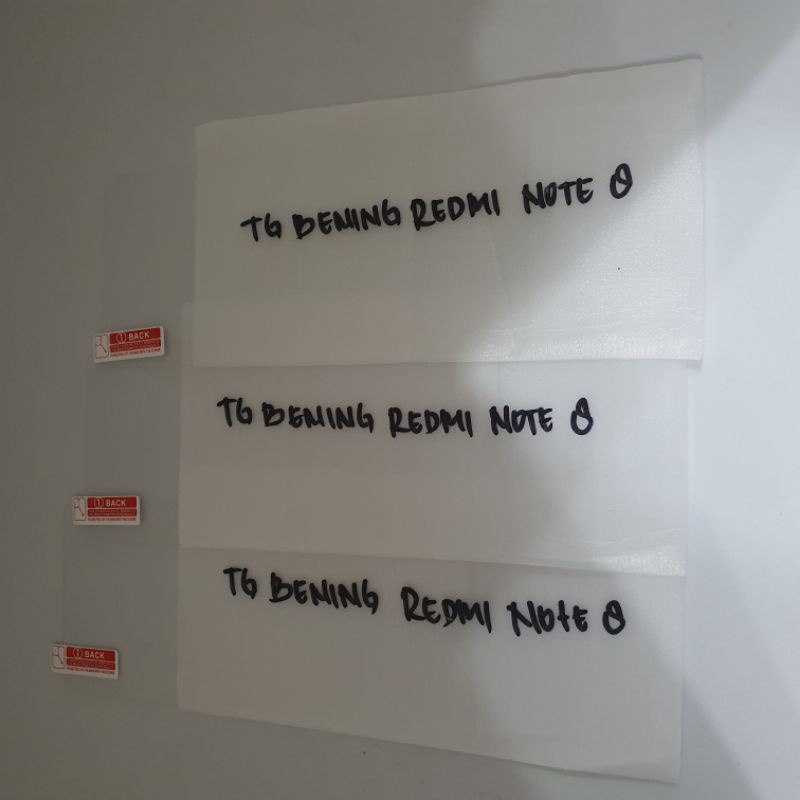 TG BENING REDMI NOTE 8
① BACK
TG BENING REDMI NOTE 8
① BACK
TG BENING REDMI NOTE 8
① BACK